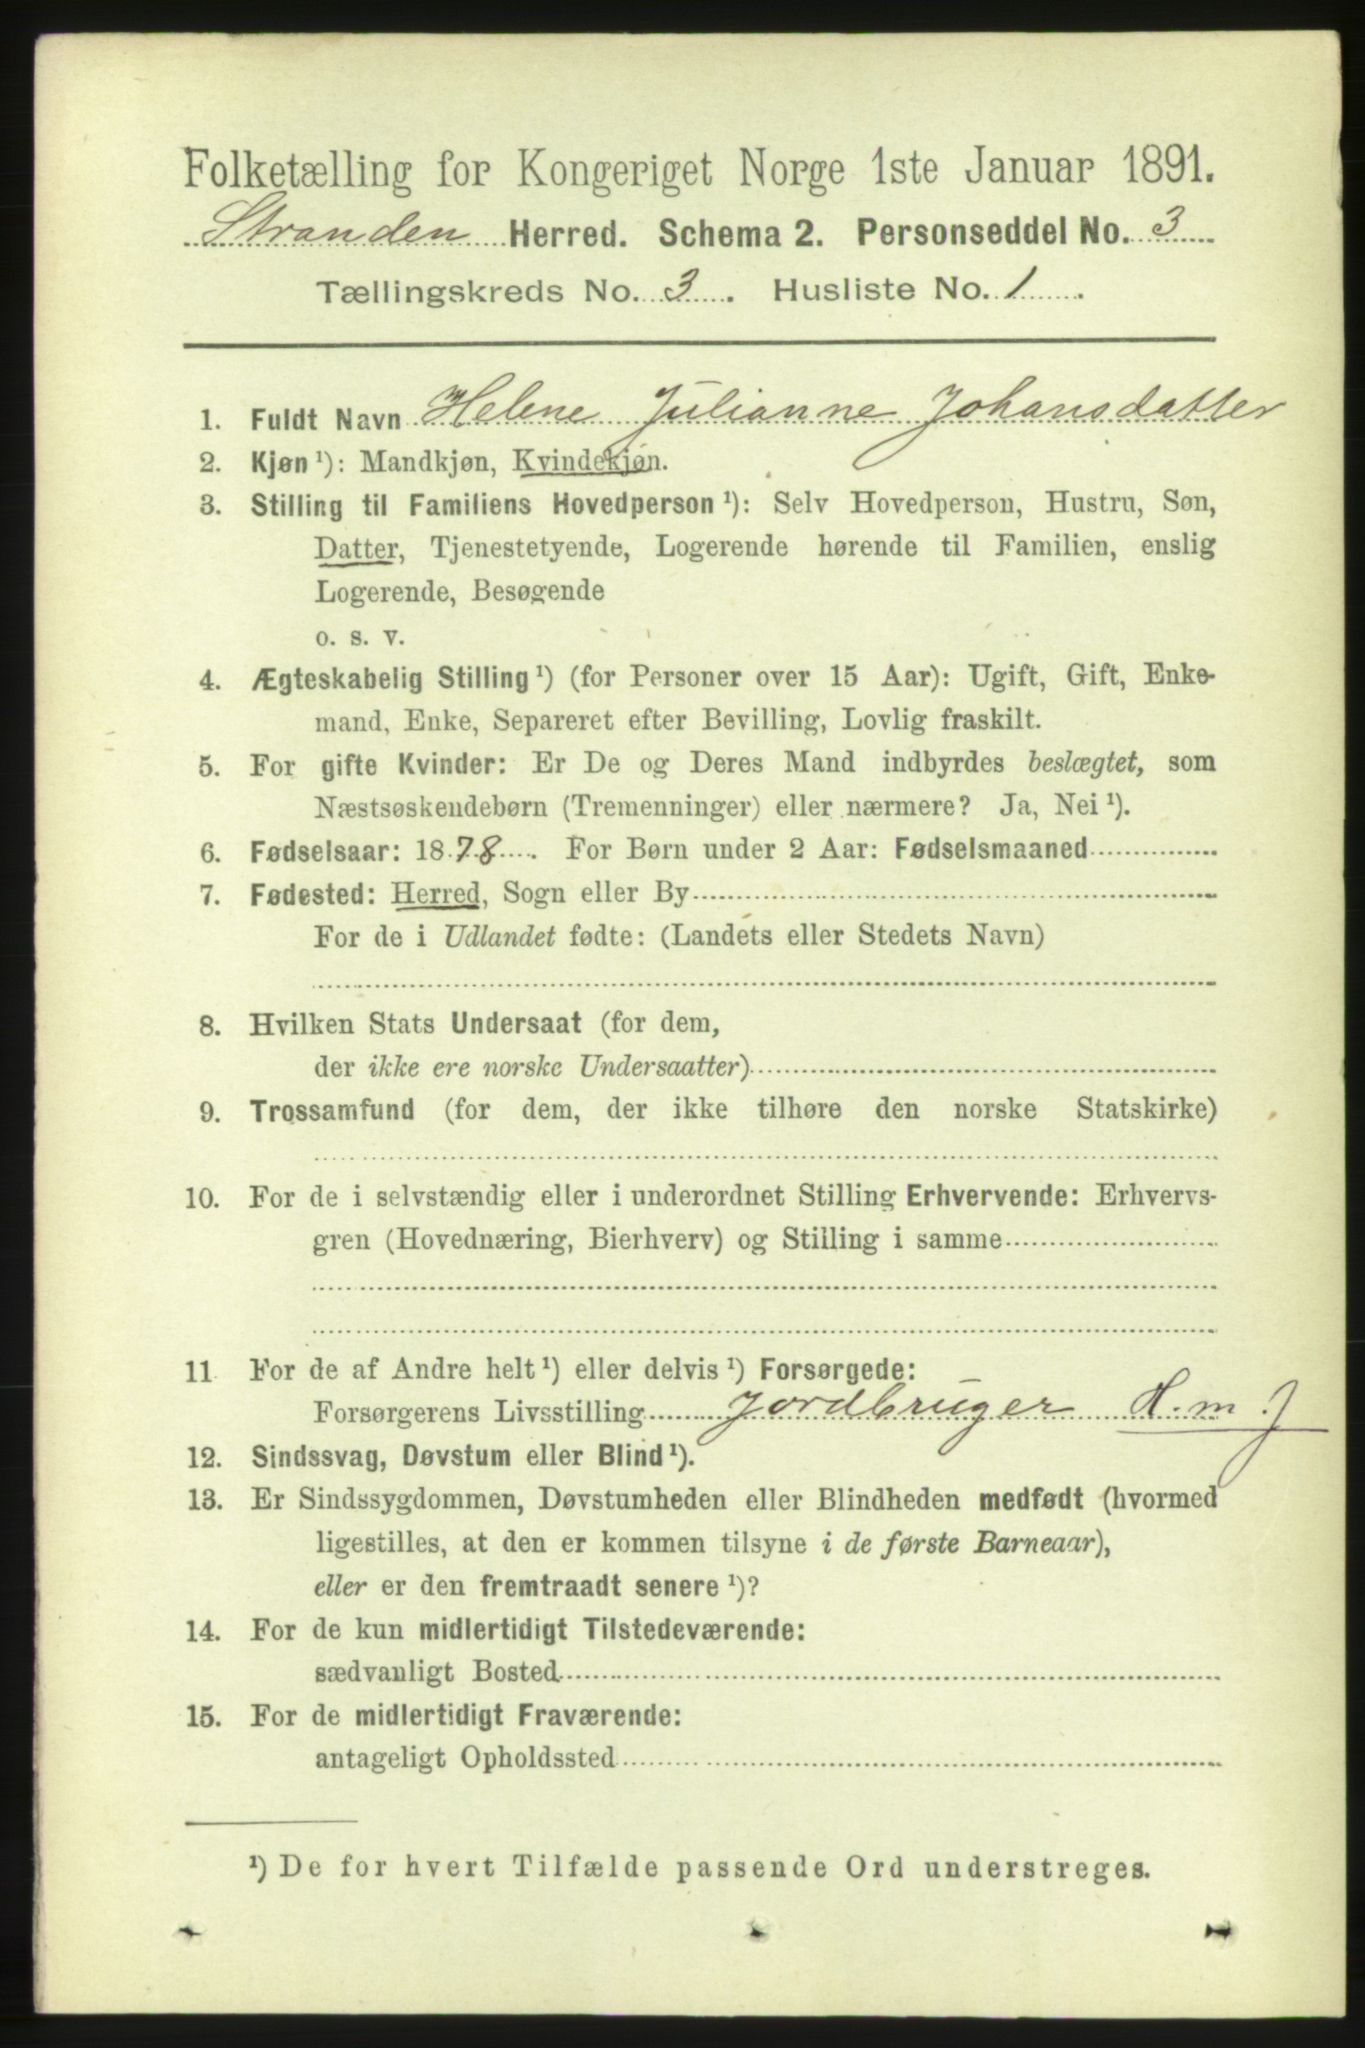 Folketælling for Kongeriget Norge 1ste Januar 1891.
Stranden Herred. Schema 2. Personseddel No. 3
Tællingskreds No. 3. Husliste No. 1.
1. Fuldt Navn Helene Julianne Johansdatter
2. Kjøn ¹): Mandkjøn, Kvindekjøn.
3. Stilling til Familiens Hovedperson ¹): Selv Hovedperson, Hustru, Søn,
Datter, Tjenestetyende, Logerende hørende til Familien, enslig
Logerende, Besøgende
o. s. v.
4. Ægteskabelig Stilling ¹) (for Personer over 15 Aar): Ugift, Gift, Enke-
mand, Enke, Separeret efter Bevilling, Lovlig fraskilt.
5. For gifte Kvinder: Er De og Deres Mand indbyrdes beslægtet, som
Næstsøskendebørn (Tremenninger) eller nærmere? Ja, Nei ¹).
6. Fødselsaar: 1878. For Børn under 2 Aar: Fødselsmaaned
7. Fødested: Herred, Sogn eller By
For de i Udlandet fødte: (Landets eller Stedets Navn)
8. Hvilken Stats Undersaat (for dem,
der ikke ere norske Undersaatter)
9. Trossamfund (for dem, der ikke tilhøre den norske Statskirke)
10. For de i selvstændig eller i underordnet Stilling Erhvervende: Erhvervs-
gren (Hovednæring, Bierhverv) og Stilling i samme
11 For de af Andre helt ¹) eller delvis ¹) Forsørgede:
Forsørgerens Livsstilling Jordbruger H. m. J
12. Sindssvag, Døvstum eller Blind ¹).
13. Er Sindssygdommen, Døvstumheden eller Blindheden medfødt (hvormed
ligestilles, at den er kommen tilsyne i de første Barneaar),
eller er den fremtraadt senere ¹)?
14. For de kun midlertidigt Tilstedeværende:
sædvanligt Bosted
15. For de midlertidigt Fraværende:
antageligt Opholdssted
¹) De for hvert Tilfælde passende Ord understreges.